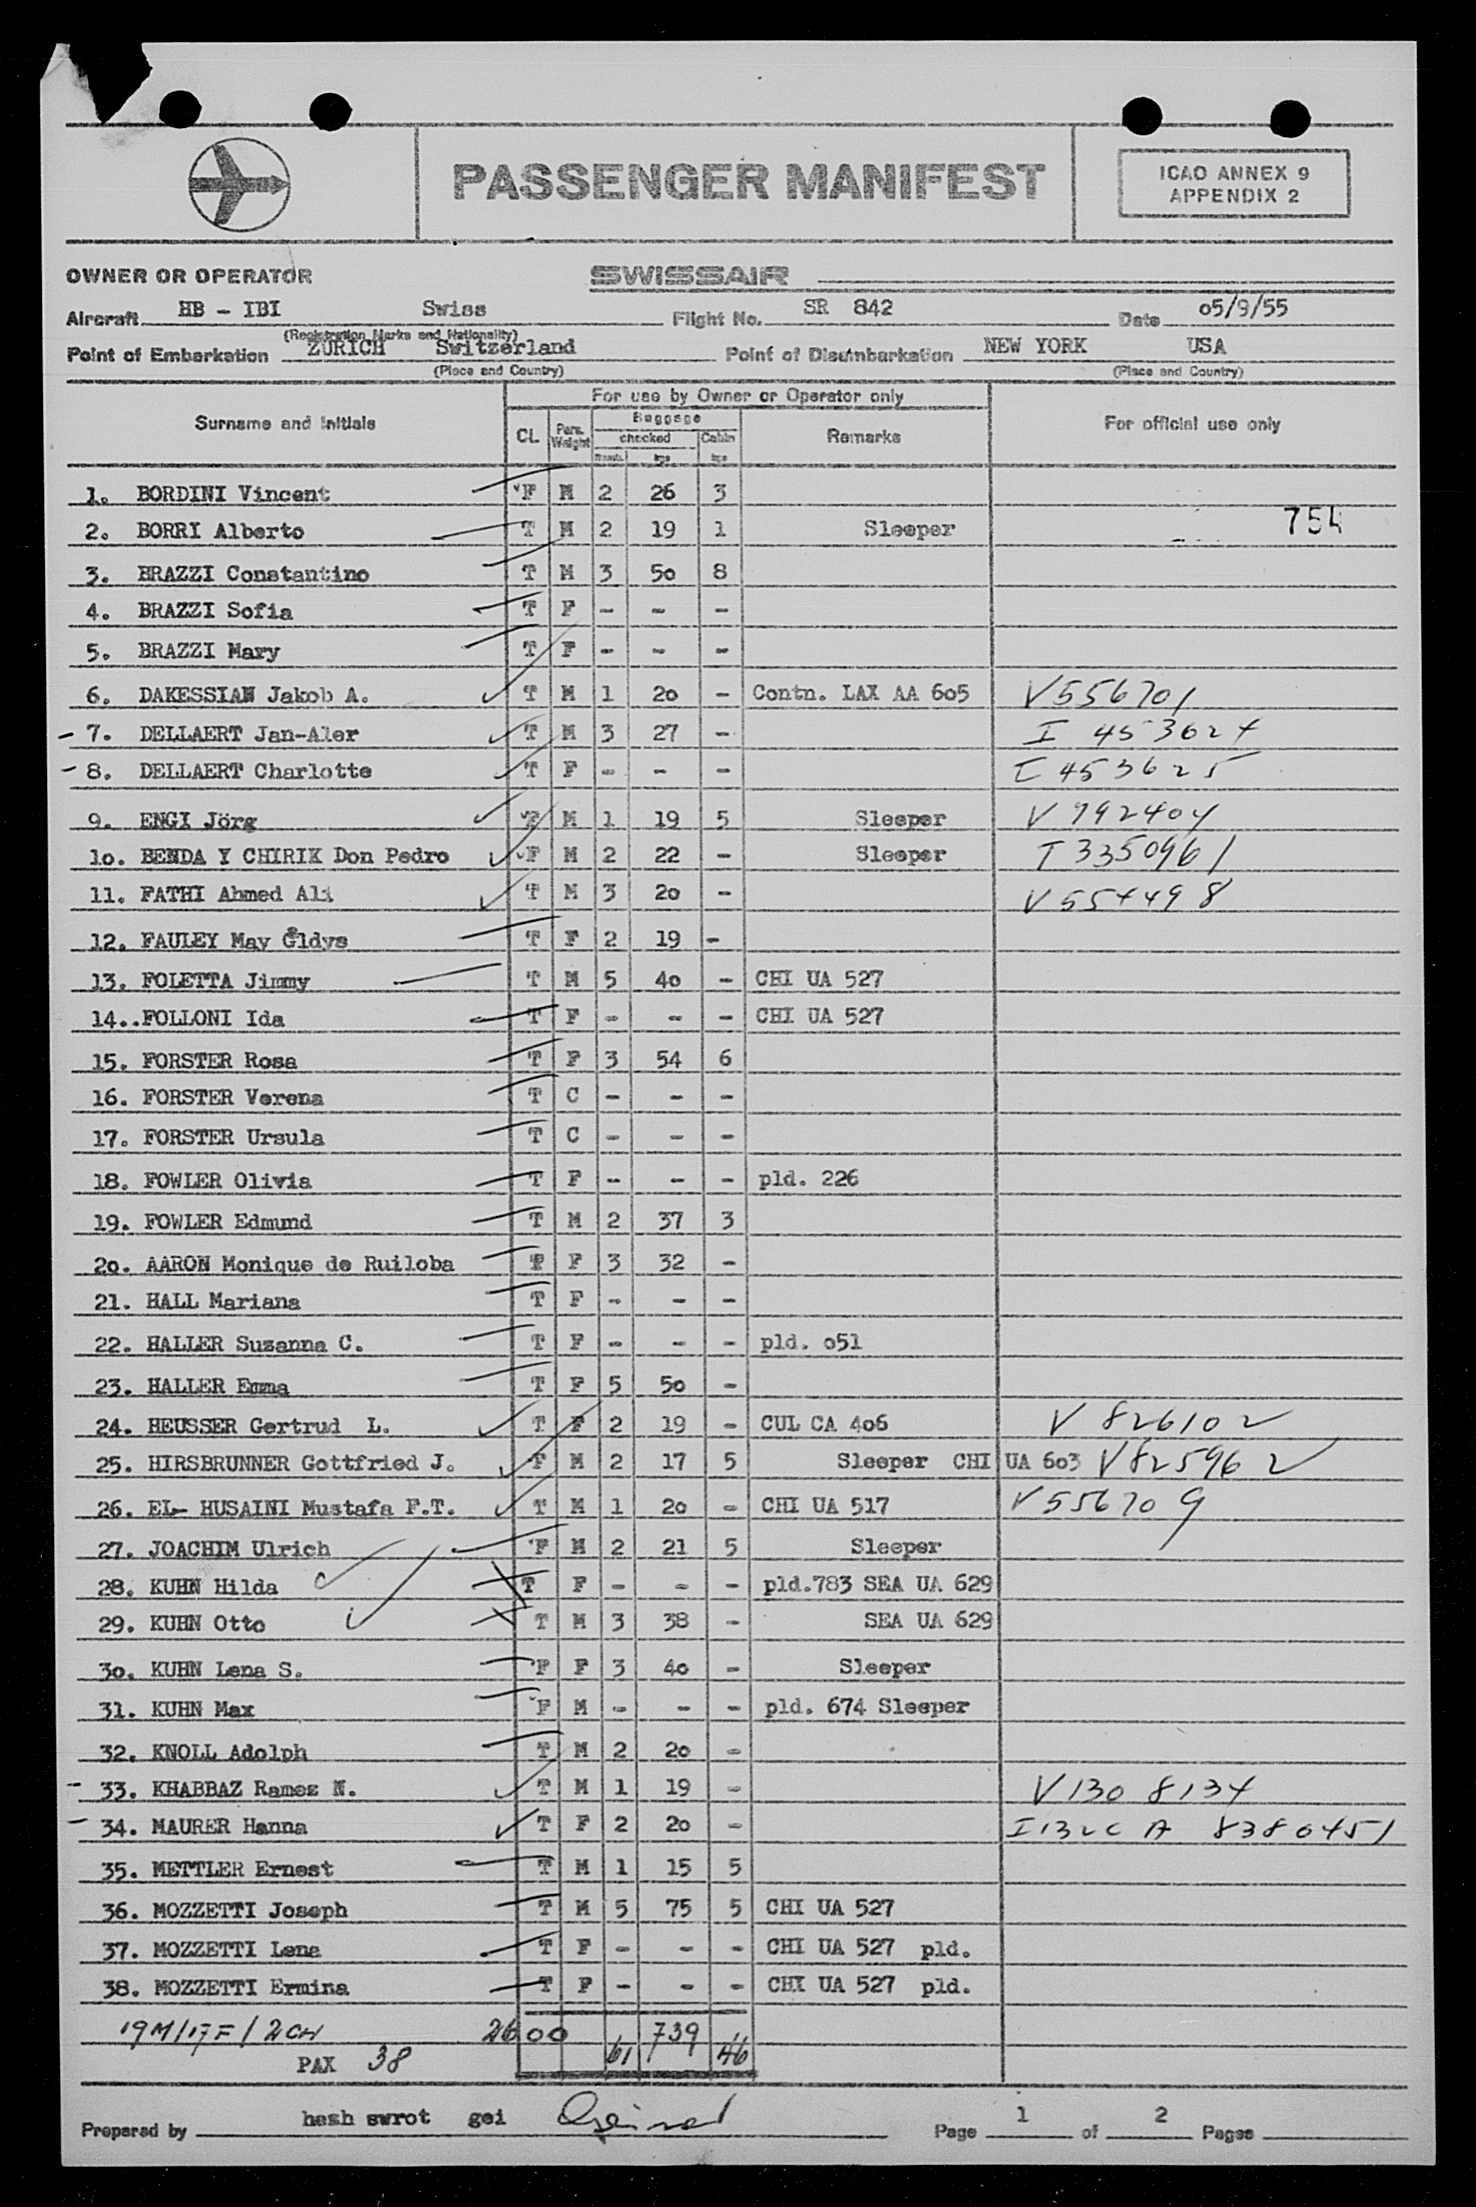 PASSENGER MANIFEST
ICAO ANNEX 9
APPENDIX 2
OWNER OR OPERATOR SWISSAIR
Aircraft HB - IBI Swiss Flight No. SR 842 Date o5/9/55
(Registration Marks and Nationality)
Point of Embarkation ZURICH Switzerland Point of Disembarkation NEW YORK USA
(Place and Country) (Place and Country)
For use by Owner or Operator only
Surname and Initials CL Pers. Weight Baggage checked Cabin Remarks For official use only
kgs kgs
1. BORDINI Vincent F M 2 26 3
2. BORRI Alberto T M 2 19 1 Sleeper 754
3. BRAZZI Constantino T M 3 5o 8
4. BRAZZI Sofia T F - - -
5. BRAZZI Mary T F - - -
6. DAKESSIAN Jakob A. T M 1 2o - Contn. LAX AA 6o5 V556701
- 7. DELLAERT Jan-Aler T M 3 27 - I 453624
- 8. DELLAERT Charlotte T F - - - I 453625
9. ENGI Jörg F M 1 19 5 Sleeper V 792404
1o. BENDA Y CHIRIK Don Pedro F M 2 22 - Sleeper I 3350961
11. FATHI Ahmed Ali T M 3 2o - V 554498
12. FAULEY May Gldys T F 2 19 -
13. FOLETTA Jimmy T M 5 4o - CHI UA 527
14..FOLLONI Ida T F - - - CHI UA 527
15. FORSTER Rosa T F 3 54 6
16. FORSTER Verena T C - - -
17. FORSTER Ursula T C - - -
18. FOWLER Olivia T F - - - pld. 226
19. FOWLER Edmund T M 2 37 3
2o. AARON Monique de Ruiloba T F 3 32 -
21. HALL Mariana T F - - -
22. HALLER Suzanna C. T F - - - pld. o51
23. HALLER Emma T F 5 5o -
24. HEUSSER Gertrud L. T F 2 19 - CUL CA 4o6 V 826102
25. HIRSBRUNNER Gottfried J. T M 2 17 5 Sleeper CHI UA 6o3 V825962
26. EL- HUSAINI Mustafa F.T. T M 1 2o - CHI UA 517 V556709
27. JOACHIM Ulrich F M 2 21 5 Sleeper
28. KUHN Hilda T F - - - pld.783 SEA UA 629
29. KUHN Otto T M 3 38 - SEA UA 629
3o. KUHN Lena S. F F 3 4o - Sleeper
31. KUHN Max F M - - - pld. 674 Sleeper
32. KNOLL Adolph T M 2 2o -
- 33. KHABBAZ Ramez N. T M 1 19 - V130 8134
- 34. MAURER Hanna T F 2 2o - A 8380451
35. METTLER Ernest T M 1 15 5
36. MOZZETTI Joseph T M 5 75 5 CHI UA 527
37. MOZZETTI Lena T F - - - CHI UA 527 pld.
38. MOZZETTI Ermina T F - - - CHI UA 527 pld.
19M/17F/2CH 2600 61 739 46
PAX 38
Prepared by hesh swrot gei Page 1 of 2 Pages